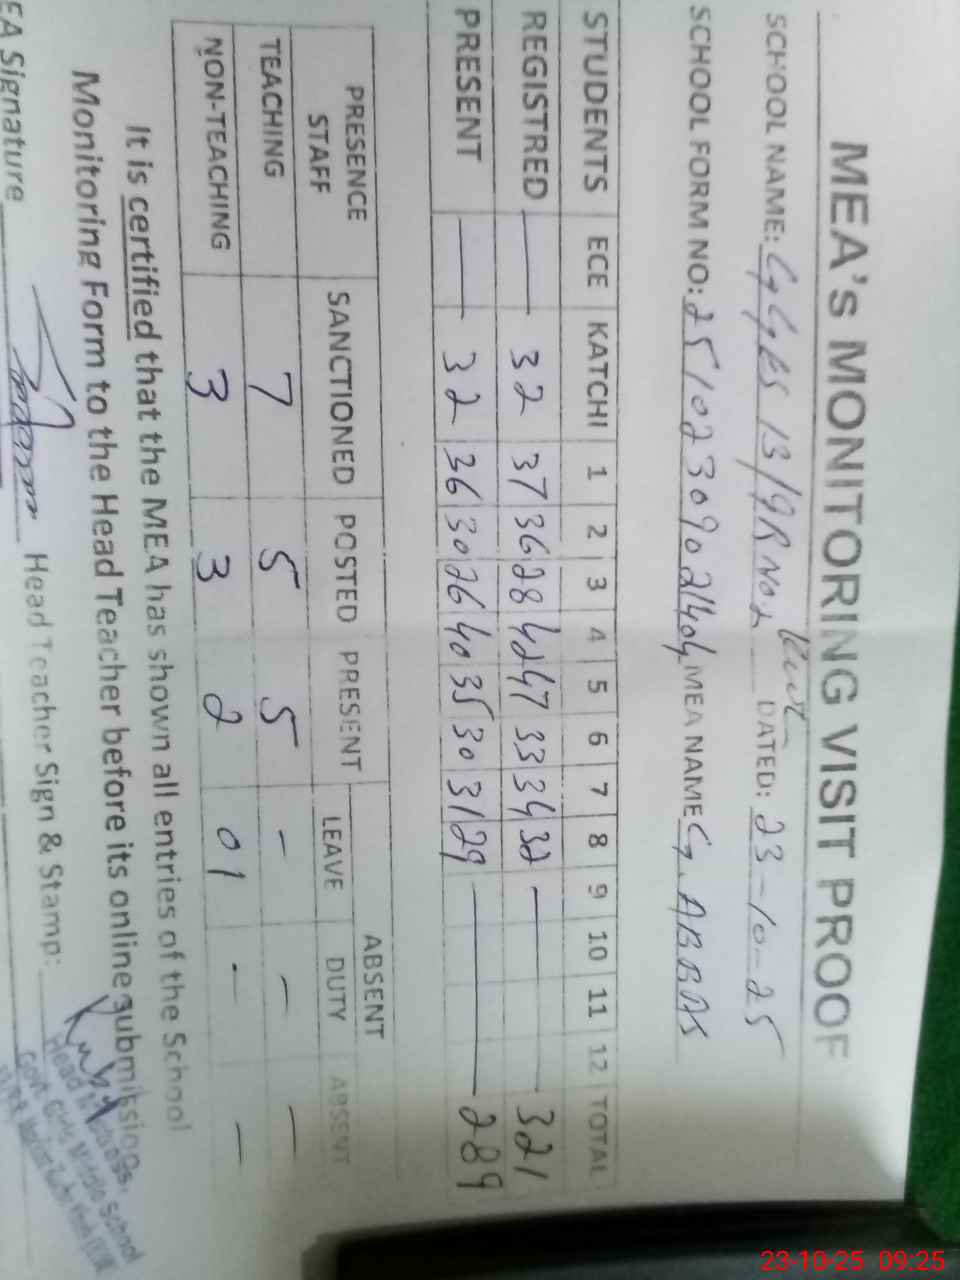 MEA's MONITORING VISIT PROOF
SCHOOL NAME: GGES 13/9R No2 DATED: 23-10-25
SCHOOL FORM NO: 25102309021404 MEA NAME G. ABBAS
STUDENTS ECE KATCHI 1 2 3 4 5 6 7 8 9 10 11 12 TOTAL
REGISTRED — 32 37 36 28 42 47 33 34 32 — 321
PRESENT — 32 36 30 26 40 35 30 31 29 — 289
PRESENCE STAFF SANCTIONED POSTED PRESENT ABSENT
LEAVE DUTY ABSENT
TEACHING 7 5 5 - - -
NON-TEACHING 3 3 2 01 - -
It is certified that the MEA has shown all entries of the School
Monitoring Form to the Head Teacher before its online submission.
EA Signature Head Teacher Sign & Stamp:
Head
Govt. Girls Middle School
23-10-25 09:25